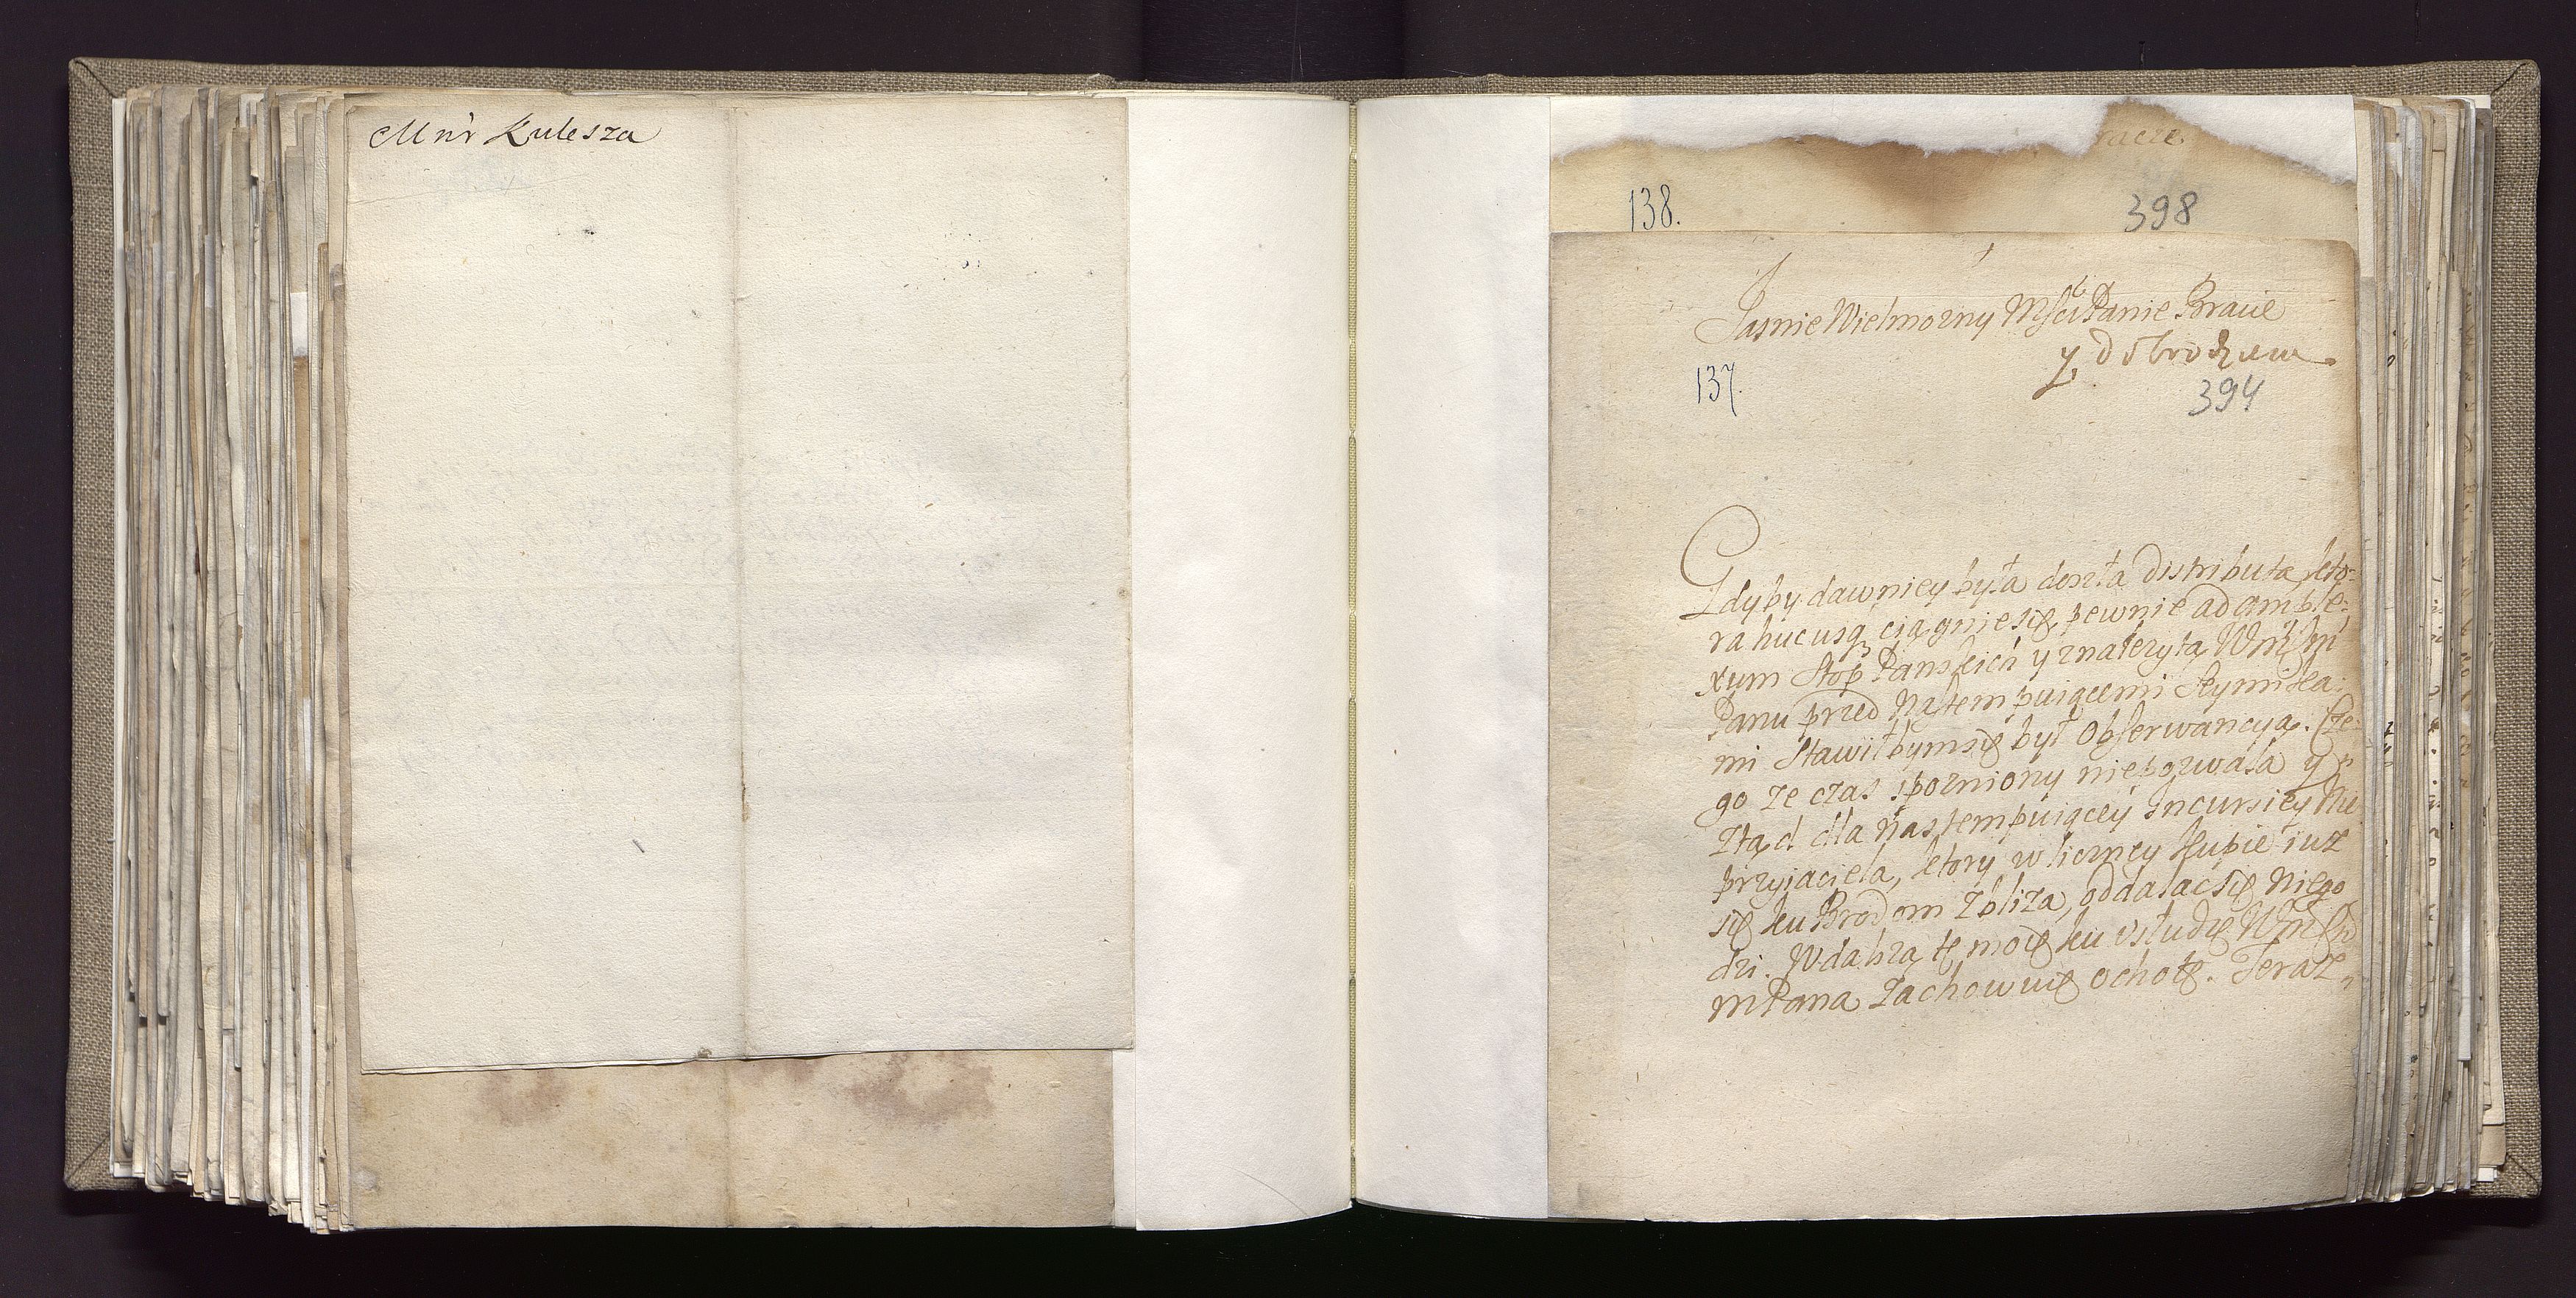 Mnr Kulesza
racie
138.
398
Jasnie Wielmozny Mści Panie Bracie
y dobrodzieiu
137.
394
Gdyby dawniey była doszła distributa, kto-
ra hucusq ciągnie się, pewnie ad ample-
xum Stop Panskich y z należytą
Panu przed nastempuiącemi
mi Stawiłbym się był Obserwancyą. Cze-
go ze czas spozniony niepozwala y
ztąd dla nastempuiącey Incursiey Nie
przyiaciela, ktory w liczney kupie iuz
się ku Brodom zbliza, oddalac się niego
dzi. W dalszą tę moię ku usłudze
mPana zachowuię ochotę. Teraz